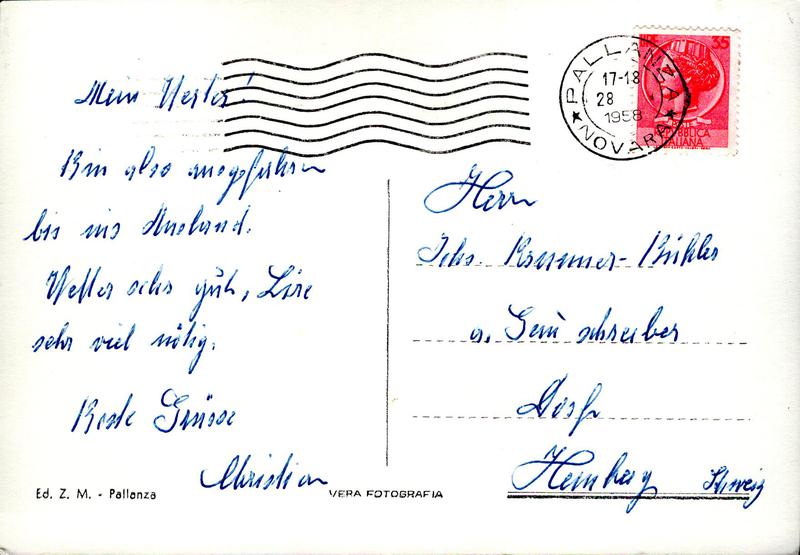 Mein Werter!
Bin also ausgefahren
bis ins Ausland.
Wetter sehr gut, Lire
sehr viel nötig.
Beste Grüsse
Christian
Ed. Z. M. - Pallanza
VERA FOTOGRAFIA
PALLANZA
17-18
28
1958
★ NOVARA ★
35
REPUBBLICA
ITALIANA
Herrn
Joh. Krummer-Bühler
a. Gem schreiber
Dorf
Hemberg Schweiz